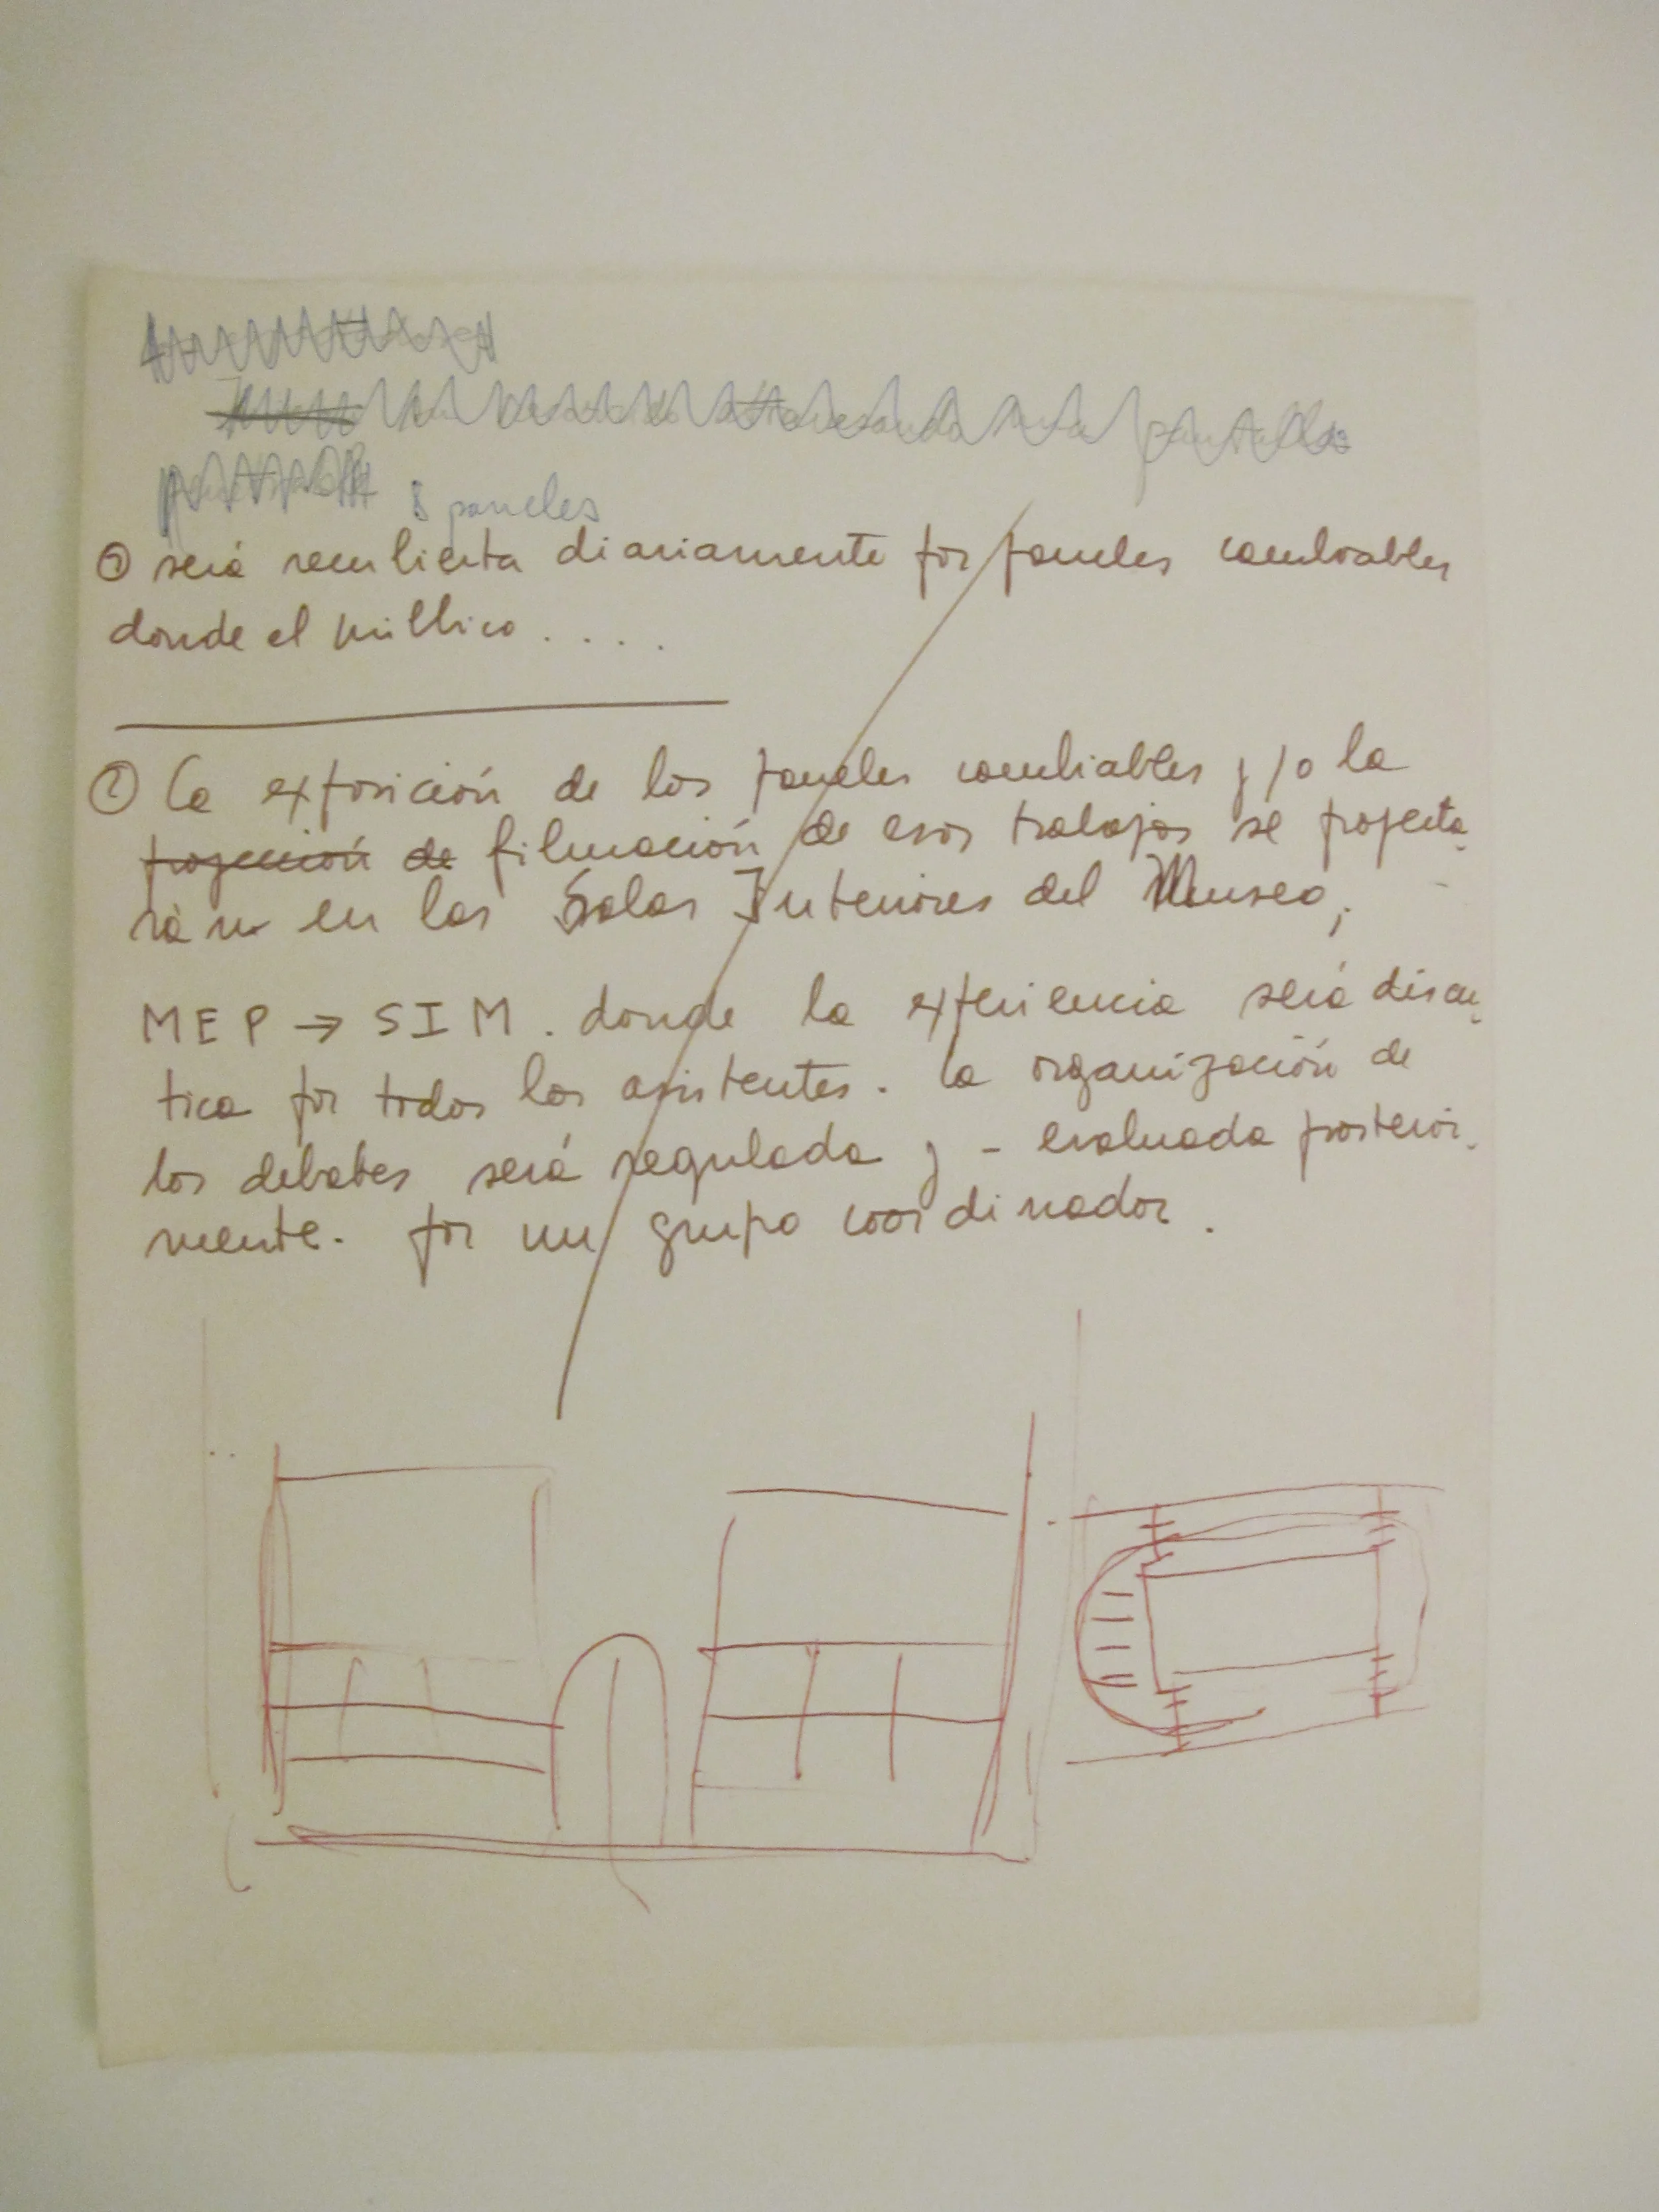 8 paneles
① será recubierta diariamente por paneles cambiables
donde el público . . . .
② La exposición de los paneles cambiables y/o la
proyección de filmación de esos trabajos se proyecta-
rán en las Salas Interiores del Museo,
MEP → SIM. donde la experiencia será discu-
tica por todos los asistentes. La organización de
los debates será regulada y - evaluada posterior-
mente - por un grupo coordinador.